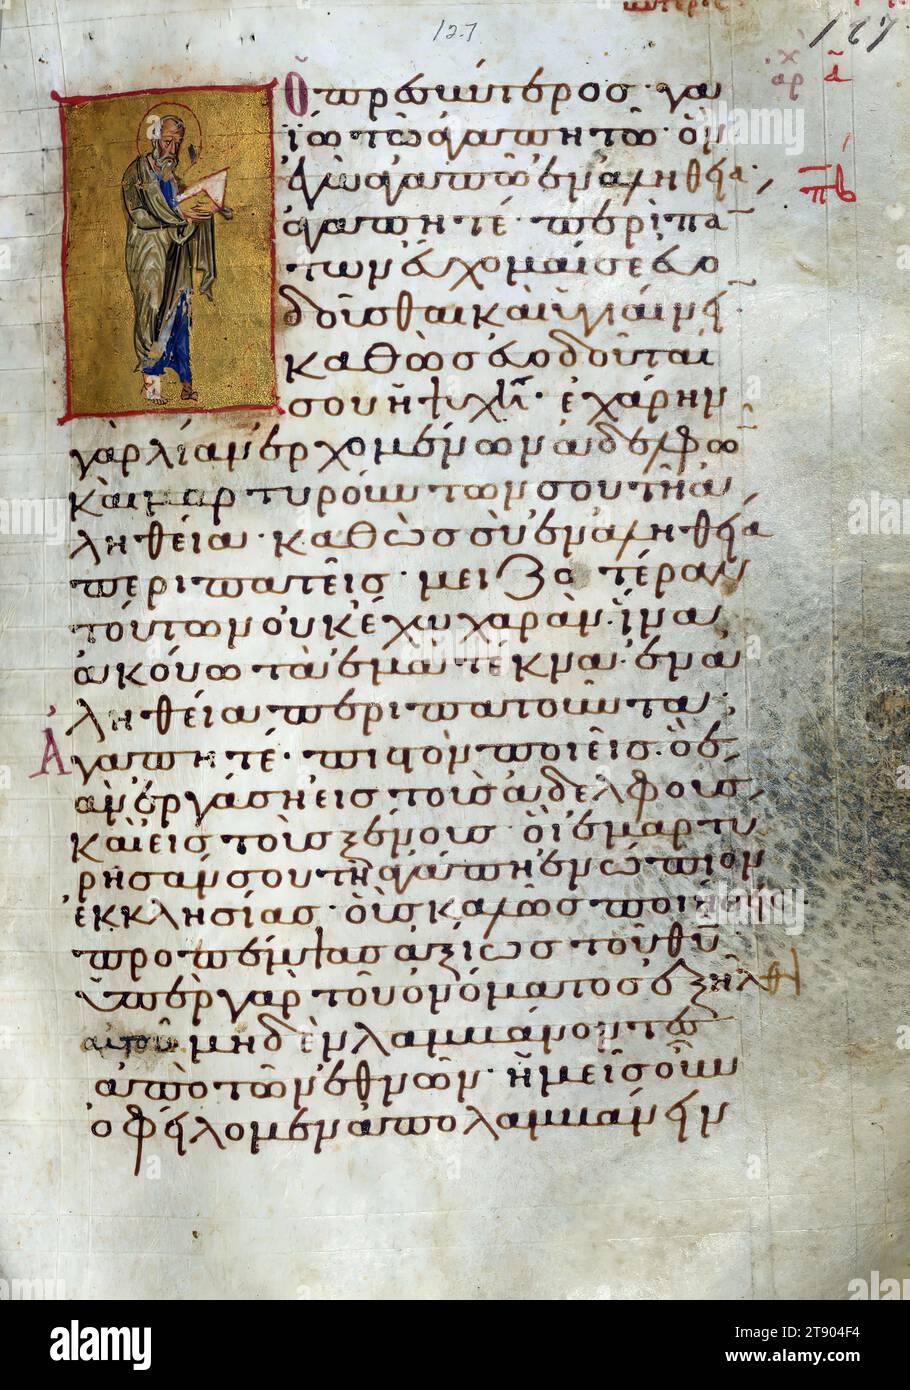 127
127
Ὁ πρεσβύτερος γαΐ
ΐω τῶ ἀγαπητῶ· ὃν
ἐγὼ ἀγαπῶ ἐν ἀληθεία·
ἀγαπητέ· περὶ πα
των εὔχομαί σε εὐο
δοῦσθαι καὶ ὑγιαίνειν
καθὼς εὐοδοῦταί
σου ἡ ψυχή· ἐχάρην
γὰρ λίαν ἐρχομένων ἀδελφῶ
καὶ μαρτυρούντων σου τῆ ἀ
ληθεία· καθὼς σὺ ἐν ἀληθεία
περιπατεῖς· μειζοτέραν
τούτων οὐκ ἔχω χαράν· ἵνα
ἀκούω τὰ ἐμὰ τέκνα· ἐν ἀ
ληθεία περιπατοῦντα·
Ἀγαπητέ· πιστὸν ποιεῖς· ὃ ἐ
ὰν ἐργάση εἰς τοὺς ἀδελφοὺς
καὶ εἰς τοὺς ξένους οἳ ἐμαρτύ
ρησάν σου τῆ ἀγάπη ἐνώπιον
ἐκκλησίας· οὓς καλῶς ποιήσεις
προπέμψας ἀξίως τοῦ θῦ
ὑπὲρ γὰρ τοῦ ὀνόματος ἐξῆλθον
αὐτοῦ μηδὲν λαμβάνοντες
ἀπὸ τῶν ἐθνῶν· ἡμεῖς οὖν
ὀφείλομεν ἀπολαμβάνειν
alamy
Image ID: 2T904F4
www.alamy.com